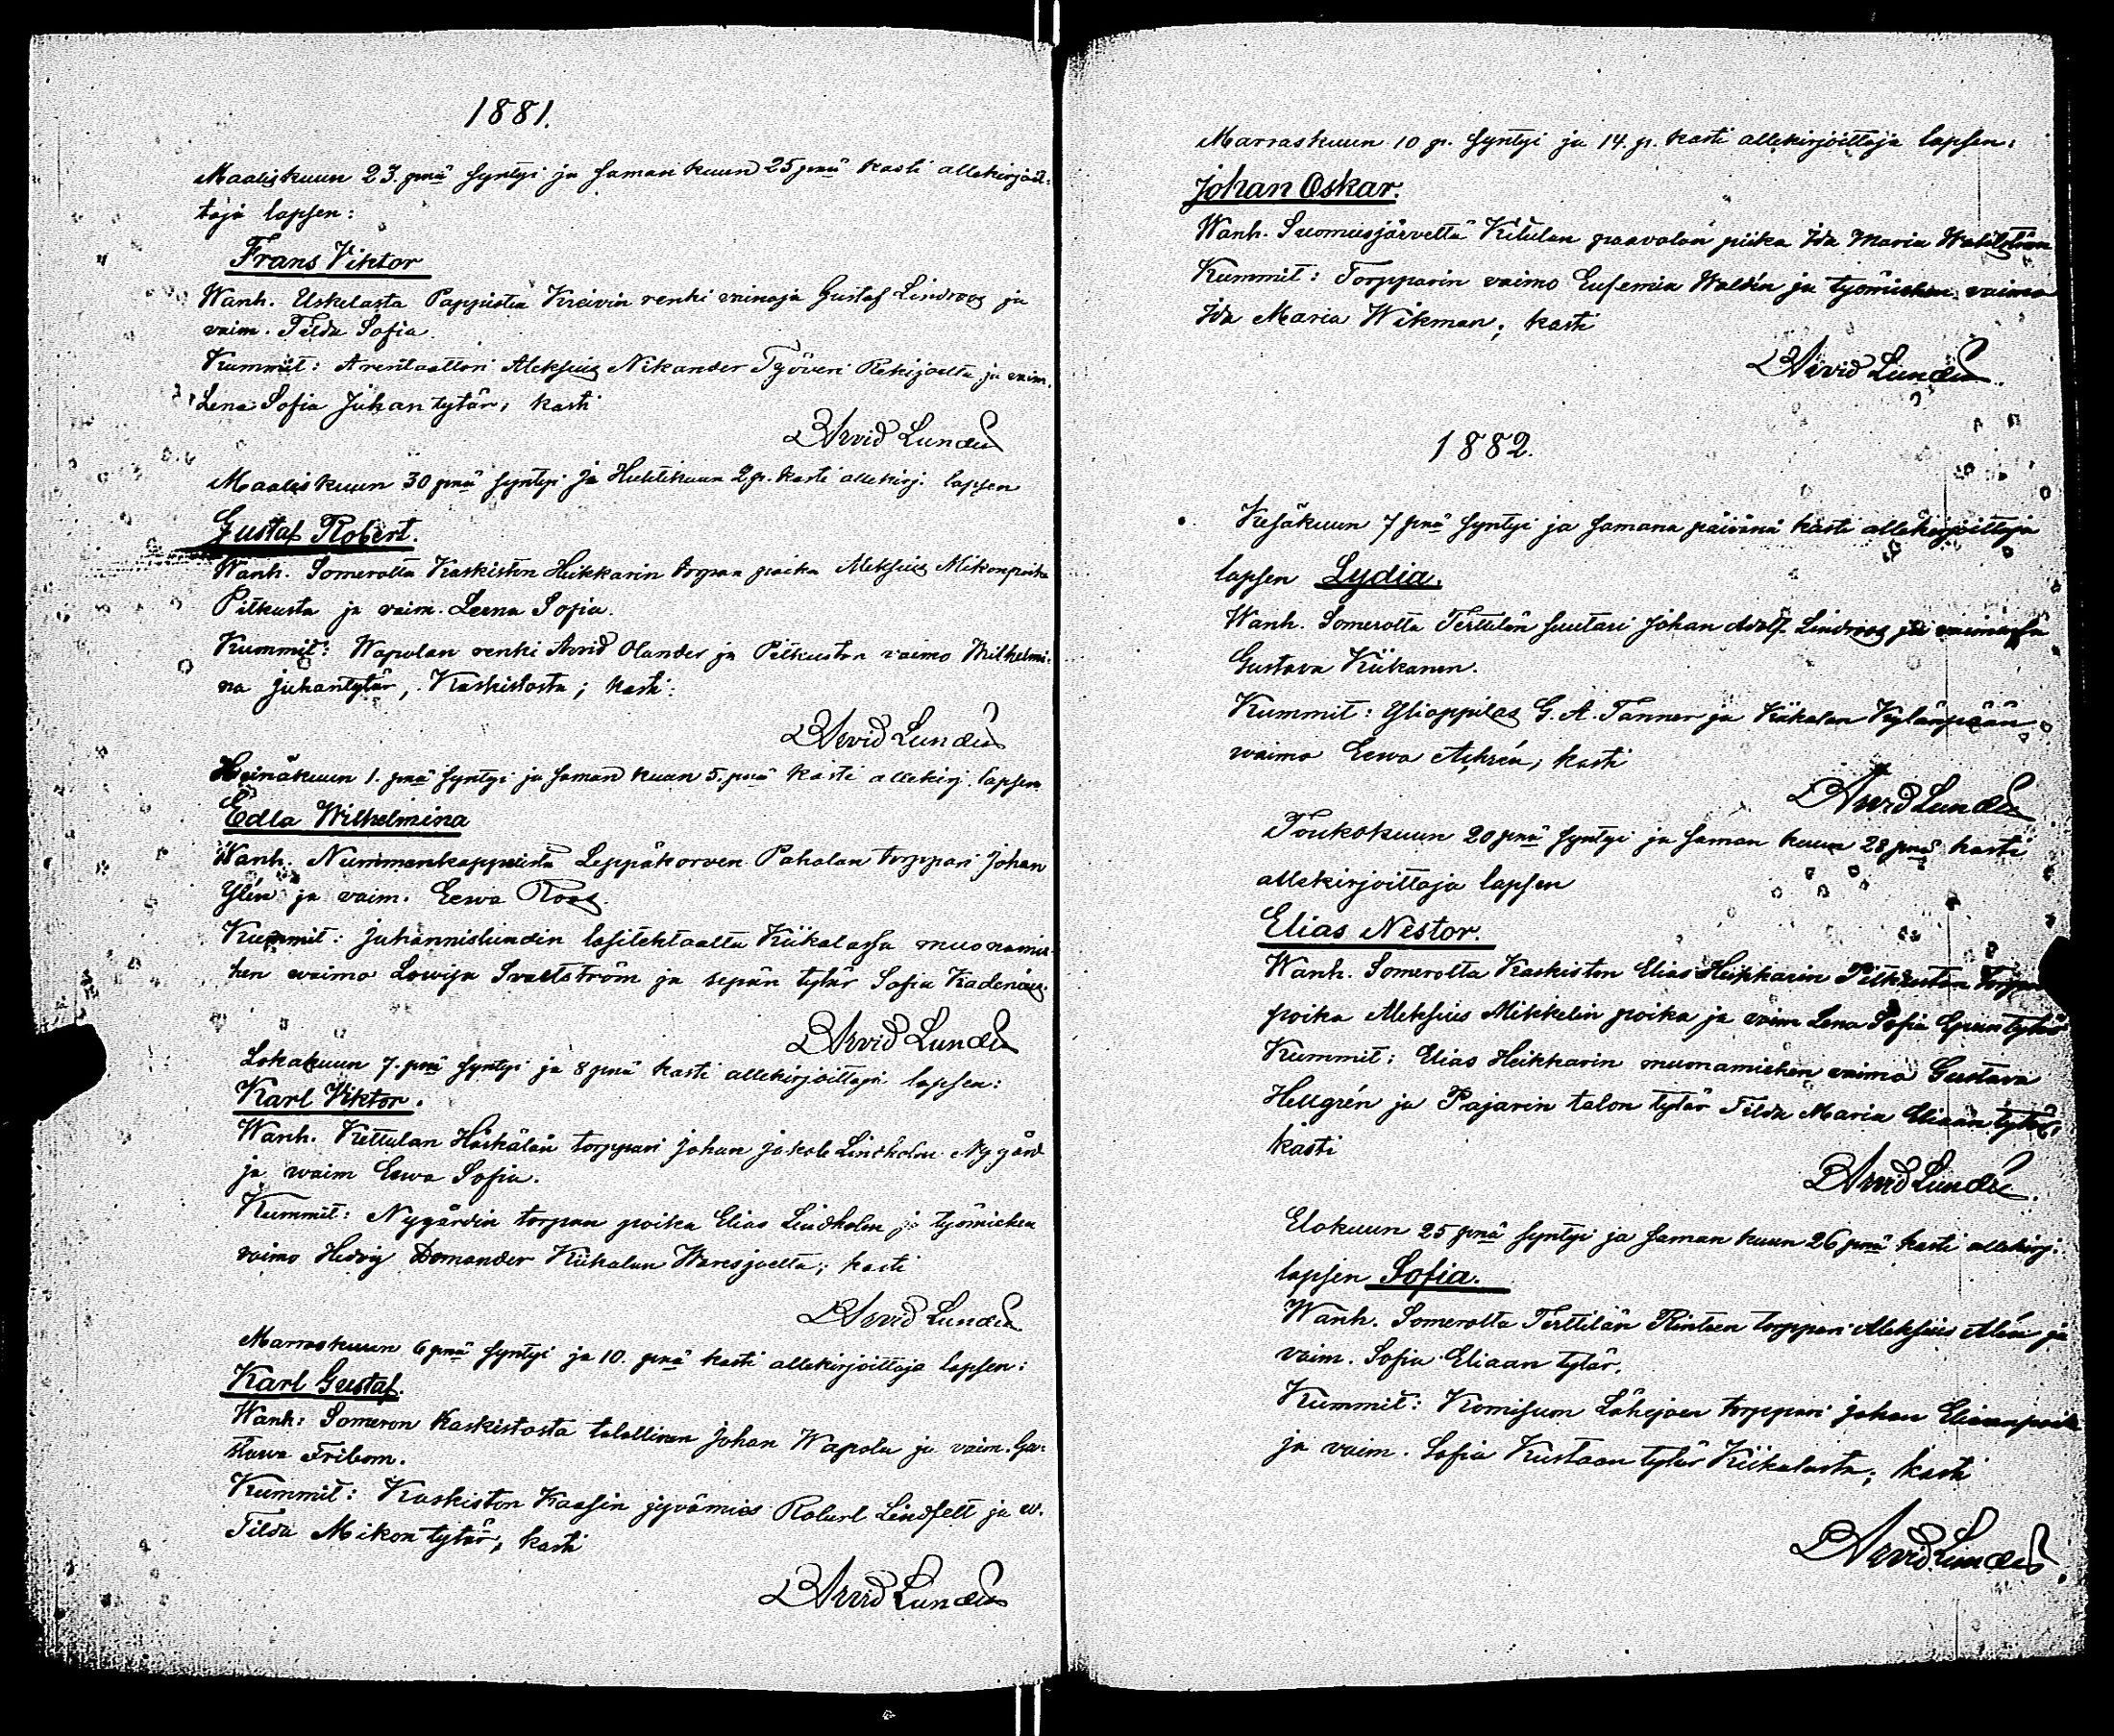 1881.
Maaliskuun 23. pnä syntyi ja saman kuun 25 pnä kasti allekirjoit-
taja lapsen:
Frans Viktor
Wanh. Uskelasta Pappista Kreivin renki vainaja Gustaf Lindroos ja
vaim. Tilda Sofia.
Kummit: Arentaattori Aleksius Nikander Työven Rekijoelta ja vaim.
Lena Sofia Juhantytär; kasti
Arvid Lundén
Maaliskuun 30 pnä syntyi ja Huhtikuun 2 p. kasti allekirj. lapsen
Gustaf Robert.
Wanh. Somerolta Kaskiston Heikkarin torpan poika Aleksius Mikonpoika
Pitkusta ja vaim. Leena Sofia.
Kummit: Wapolan renki Arvid Olander ja Pitkuston vaimo Wilhelmi-
na Juhantytär, Kaskistosta; kasti:
Arvid Lundén
Heinäkuun 1. pnä syntyi ja saman kuun 5. pnä kasti allekirj. lapsen
Edla Wilhelmina
Wanh. Nummenkappelista Leppäkorven Pahalan torppari Johan
Ylén ja vaim. Eewa Roos.
Kummit: Juhannislundin lasitehtaalta Kiikalassa muonamie-
hen waimo Lowisa Svaetström ja sepän tytär Sofia Kadenius.
Arvid Lundén
Lokakuun 7. pnä syntyi ja 8 pnä kasti allekirjoittaja lapsen:
Karl Viktor.
Wanh. Kettulan Häskälän torppari Johan Jakob Lindholm Nygård
ja waim Eewa Sofia.
Kummit: Nygårdin torpan poika Elias Lindholm ja työmiehen
vaimo Hedvig Domander Kiikalan Waresjoelta; kasti
Arvid Lundén
Marraskuun 6 pnä syntyi ja 10. pnä kasti allekirjoittaja lapsen:
Karl Gustaf.
Wanh: Someron Kaskistosta talollinen Johan Wapola ja vaim. Gus-
tawa Fribom.
Kummit: Kaskiston Kaasin jyvämies Robert Lindfelt ja w.
Tilda Mikontytär; kasti
Arvid Lundén
Marraskuun 10 p. syntyi ja 14. p. kasti allekirjoittaja lapsen:
Johan Oskar.
Wanh. Suomusjärveltä Kitulan paavolan piika Ida Maria Wahlström
Kummit: Torpparin vaimo Eufemia Waldén ja työmiehen vaimo
Ida Maria Wikman; kasti
Arvid Lundén.
1882.
Kesäkuun 7 pnä syntyi ja samana päivänä kasti allekirjoittaja
lapsen Lydia.
Wanh. Somerolta Terttilän suutari Johan Adolf Lindroos ja vaimonsa
Gustava Kiikanen.
Kummit: Ylioppilas G. A. Tanner ja Kiikalan Kylänpään
waimo Eewa Achrén; kasti
Arvid Lundén
Toukokuun 20 pnä syntyi ja saman kuun 28 pnä kasti
allekirjoittaja lapsen
Elias Nestor.
Wanh. Somerolta Kaskiston Elias Heikkarin Pitkuston Torpan
poika Aleksius Mikkelin poika ja vaim Lena Sofia tytär
Kummit: Elias Heikkarin muonamiehen vaimo Gustava
Hellgrén ja Pajarin talon tytär Tilda Maria Eliaan tytär,
kasti
Arvid Lundén.
Elokuun 25 pnä syntyi ja saman kuun 26 pnä kasti allekirj.
lapsen Sofia.
Wanh. Somerolta Terttilän Rintaen torppari Aleksius Alén ja
vaim. Sofia Eliaan tytär.
Kummit: Komisuon Lähejoen torppari Johan Eliaanpoika
ja vaim. Sofia Kustaan tytär Kiikalasta; kasti
Arvid Lundén.